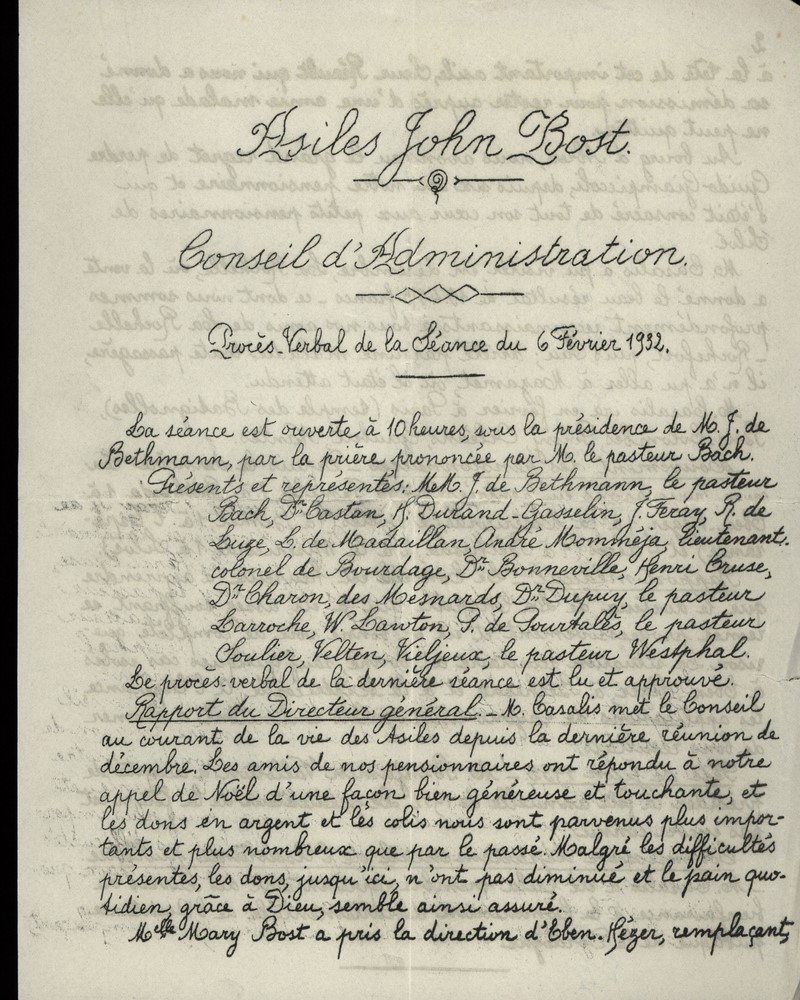 Asiles John Bost.
Conseil d'Administration.
Procès-Verbal de la Séance du 6 Février 1932.
La séance est ouverte à 10 heures, sous la présidence de M. J. de
Bethmann, par la prière prononcée par M. le pasteur Bach.
Présents et représentés: M.M. J. de Bethmann, le pasteur
Bach, Dr Castan, H. Durand-Gasselin, J. Feray, R. de
Luze, L. de Madaillan, André Momméja, lieutenant-
colonel de Bourdage, Dr Bonneville, Henri Cruse,
Dr Charon, des Mesnards, Dr Dupuy, le pasteur
Larroche, W. Lawton, P. de Pourtalès, le pasteur
Soulier, Velten, Vieljeux, le pasteur Westphal.
Le procès-verbal de la dernière séance est lu et approuvé.
Rapport du Directeur général. - M. Casalis met le Conseil
au courant de la vie des Asiles depuis la dernière réunion de
décembre. Les amis de nos pensionnaires ont répondu à notre
appel de Noël d'une façon bien généreuse et touchante, et
les dons en argent et les colis nous sont parvenus plus impor-
tants et plus nombreux que par le passé. Malgré les difficultés
présentes, les dons, jusqu'ici, n'ont pas diminué et le pain quo-
tidien, grâce à Dieu, semble ainsi assuré.
Melle Mary Bost a pris la direction d'Eben-Hézer, remplaçant,